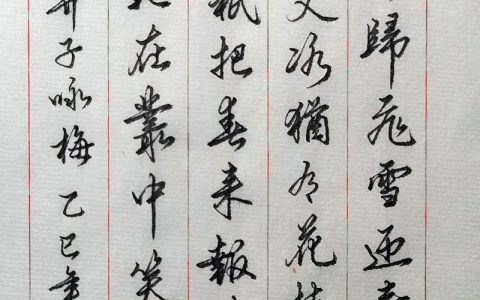 歸飛雪迎春
丈冰猶有花枝
祇把春來報
在叢中笑
算子咏梅乙巳年